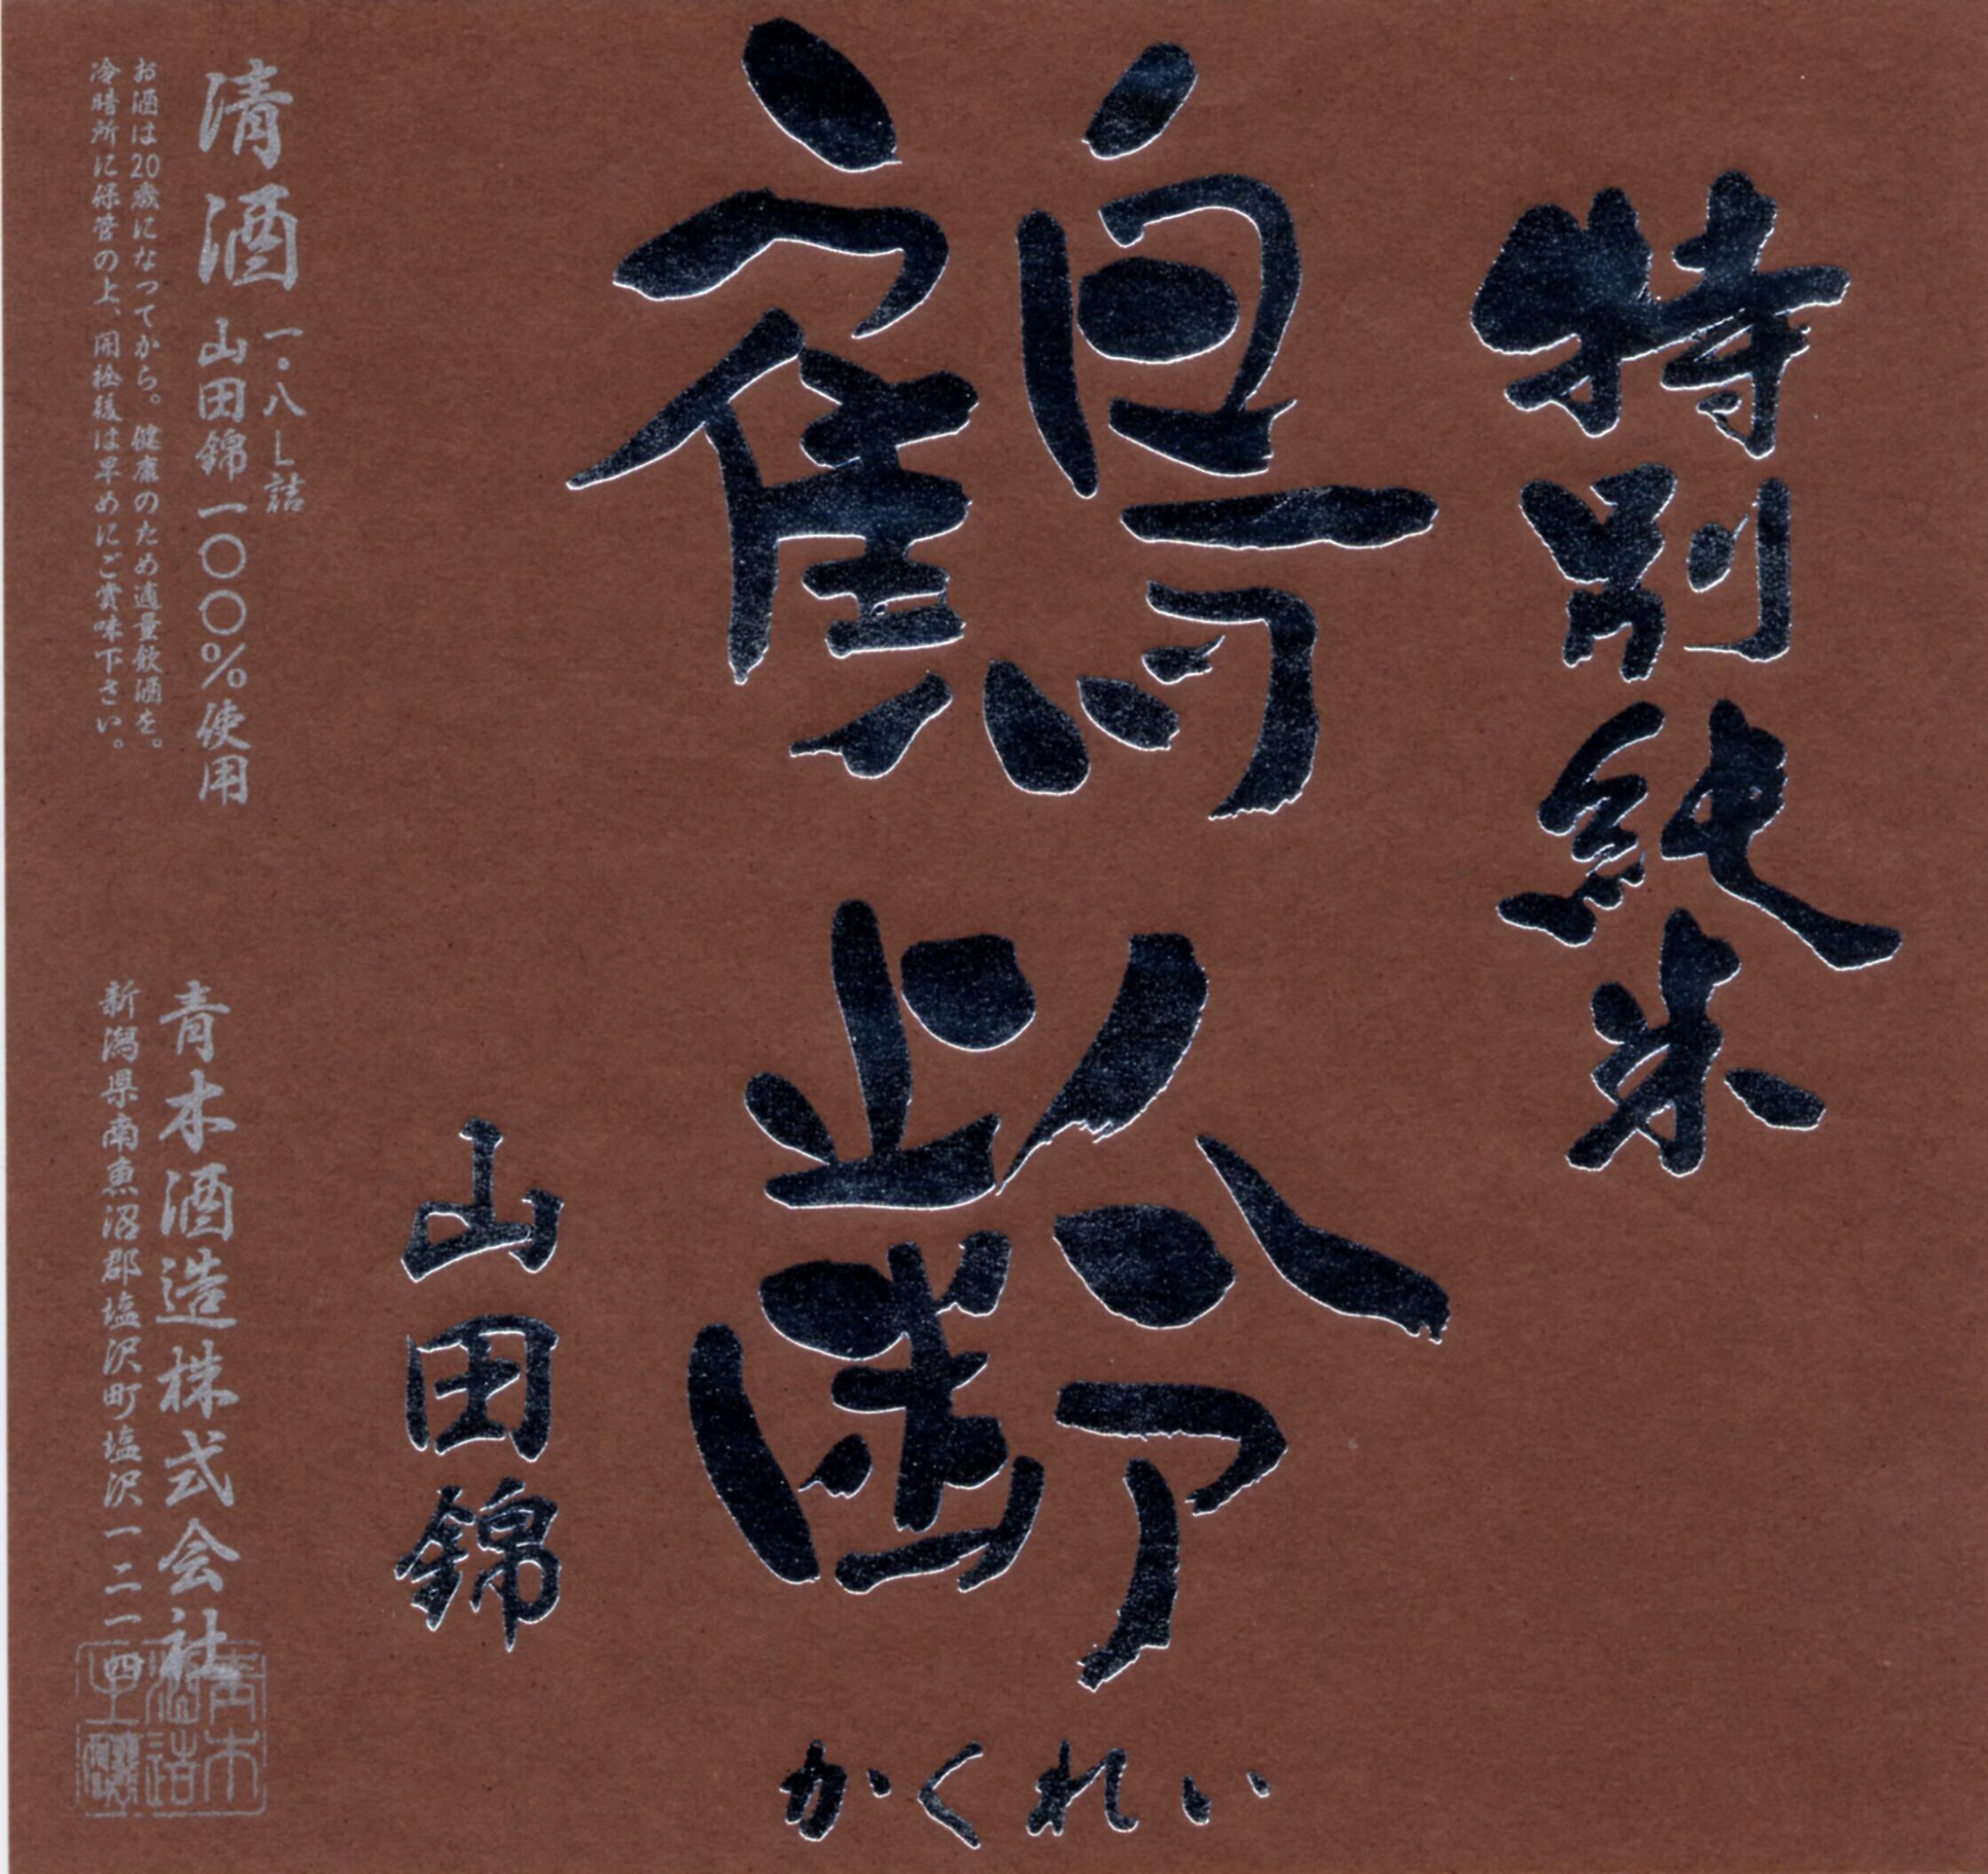 特別純米
鶴齢
かくれい
山田錦
一・八L詰
清酒 山田錦一〇〇%使用
お酒は20歳になってから。健康のため適量飲酒を。
冷暗所に保管の上、開栓後は早めにご賞味下さい。
青木酒造株式会社
新潟県南魚沼郡塩沢町塩沢一二一四
青木
酒造